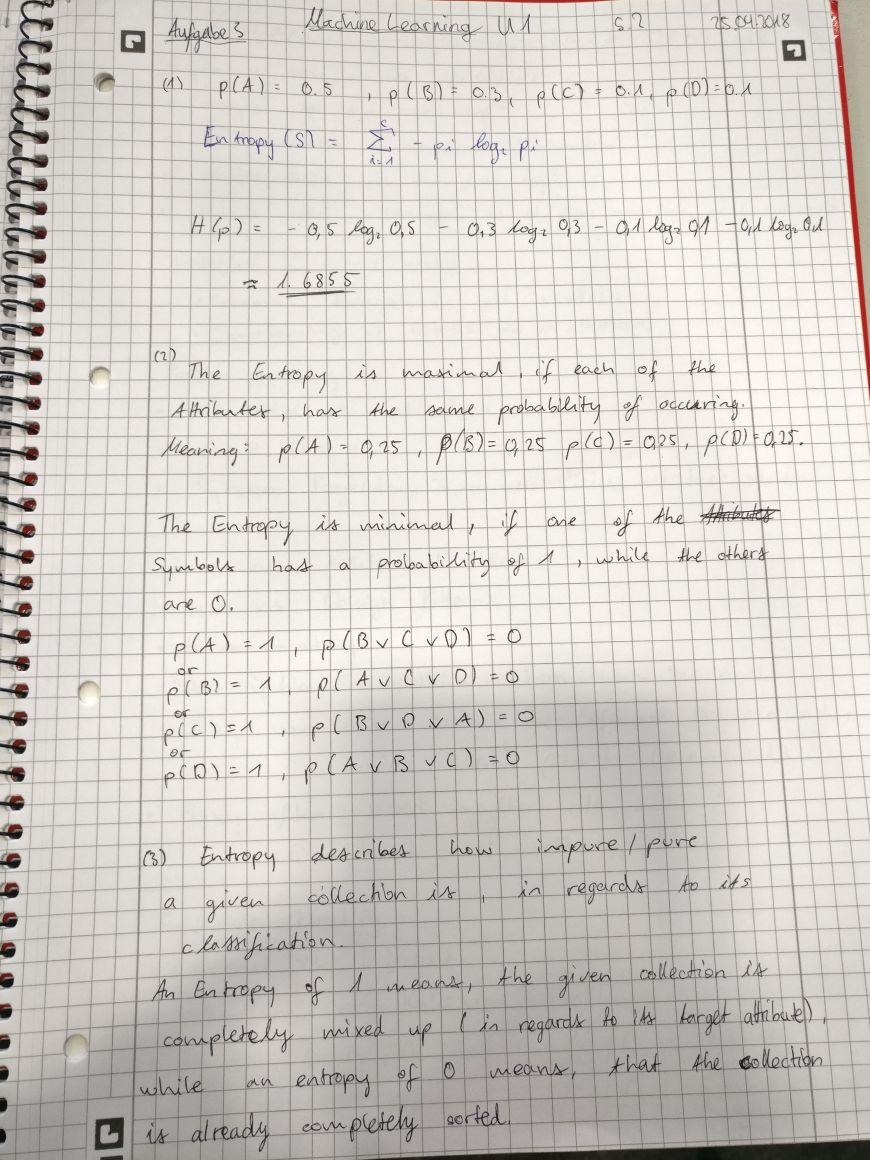 Aufgabe 3 Machine Learning U1 S.2 25.04.2018
(1) p(A) = 0.5 , p(B) = 0.3, p(C) = 0.1, p(D) = 0.1
Entropy (S) = ∑_{i=1}^{c} - pi log₂ pi
H(p) = - 0,5 log₂ 0,5 - 0,3 log₂ 0,3 - 0,1 log₂ 0,1 - 0,1 log₂ 0,1
≈ 1.6855
(2)
The Entropy is maximal, if each of the
Attributes, has the same probability of occuring.
Meaning: p(A) = 0,25 , p(B) = 0,25 p(C) = 0,25, p(D) = 0,25.
The Entropy is minimal, if one of the Attributes
Symbols has a probability of 1, while the others
are 0.
p(A) = 1 , p(B ∨ C ∨ D) = 0
or
p(B) = 1 , p(A ∨ C ∨ D) = 0
or
p(C) = 1 , p(B ∨ D ∨ A) = 0
or
p(D) = 1 , p(A ∨ B ∨ C) = 0
(3) Entropy describes how impure / pure
a given collection is, in regards to its
classification.
An Entropy of 1 means, the given collection is
completely mixed up (in regards to its target attribute),
while an entropy of 0 means, that the collection
is already completely sorted.